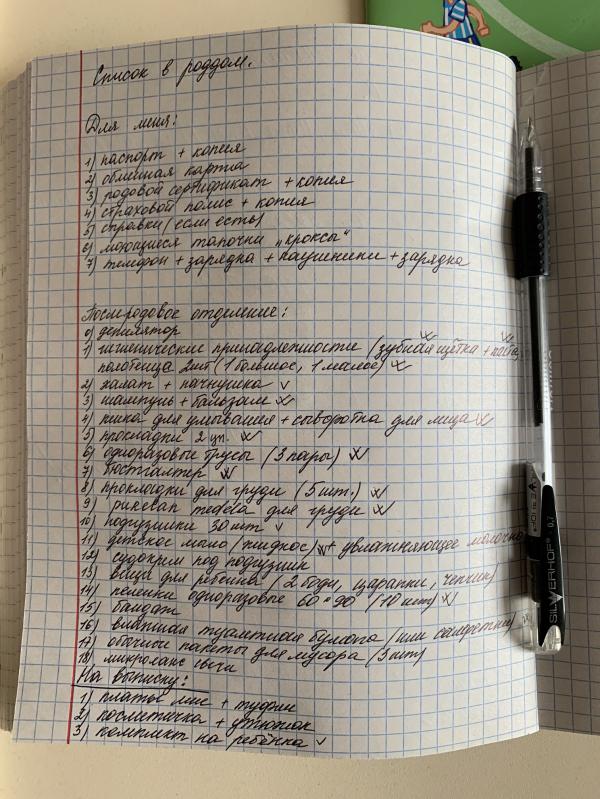 Список в роддом.
Для меня:
1) паспорт + копия
2) обменная карта
3) родовой сертификат + копия
4) страховой полис + копия
5) справки (если есть)
6) моющиеся тапочки „кроксы"
7) телефон + зарядка + наушники + зарядка
Послеродовое отделение:
0) депилятор
1) гигиенические принадлежности (зубная щётка + паста,
полотенца 2шт (1 большое, 1 малое)
2) халат + ночнушка ✓
3) шампунь + бальзам
4) пенка для умывания + сыворотка для лица
5) прокладки 2 уп.
6) одноразовые трусы (3 пары)
7) бюстгалтер
8) прокладки для груди (5 шт.)
9) medela для груди
10) подгузники 30 шт ✓
11) детское мыло (жидкое) + увлажняющее молочко
12) судокрем под подгузник
13) вещи для ребенка (2 боди, царапки, чепчик)
14) пеленки одноразовые 60*90 (10 шт)
15) бандаж
16) влажная туалетная бумага (или салфетки)
17) обычные пакеты для мусора (3 шт)
18) микролакс свечи
На выписку:
1) платье мне + туфли
2) косметичка + утюжок
3) комплект на ребёнка ✓
SILWERHOF 0,7